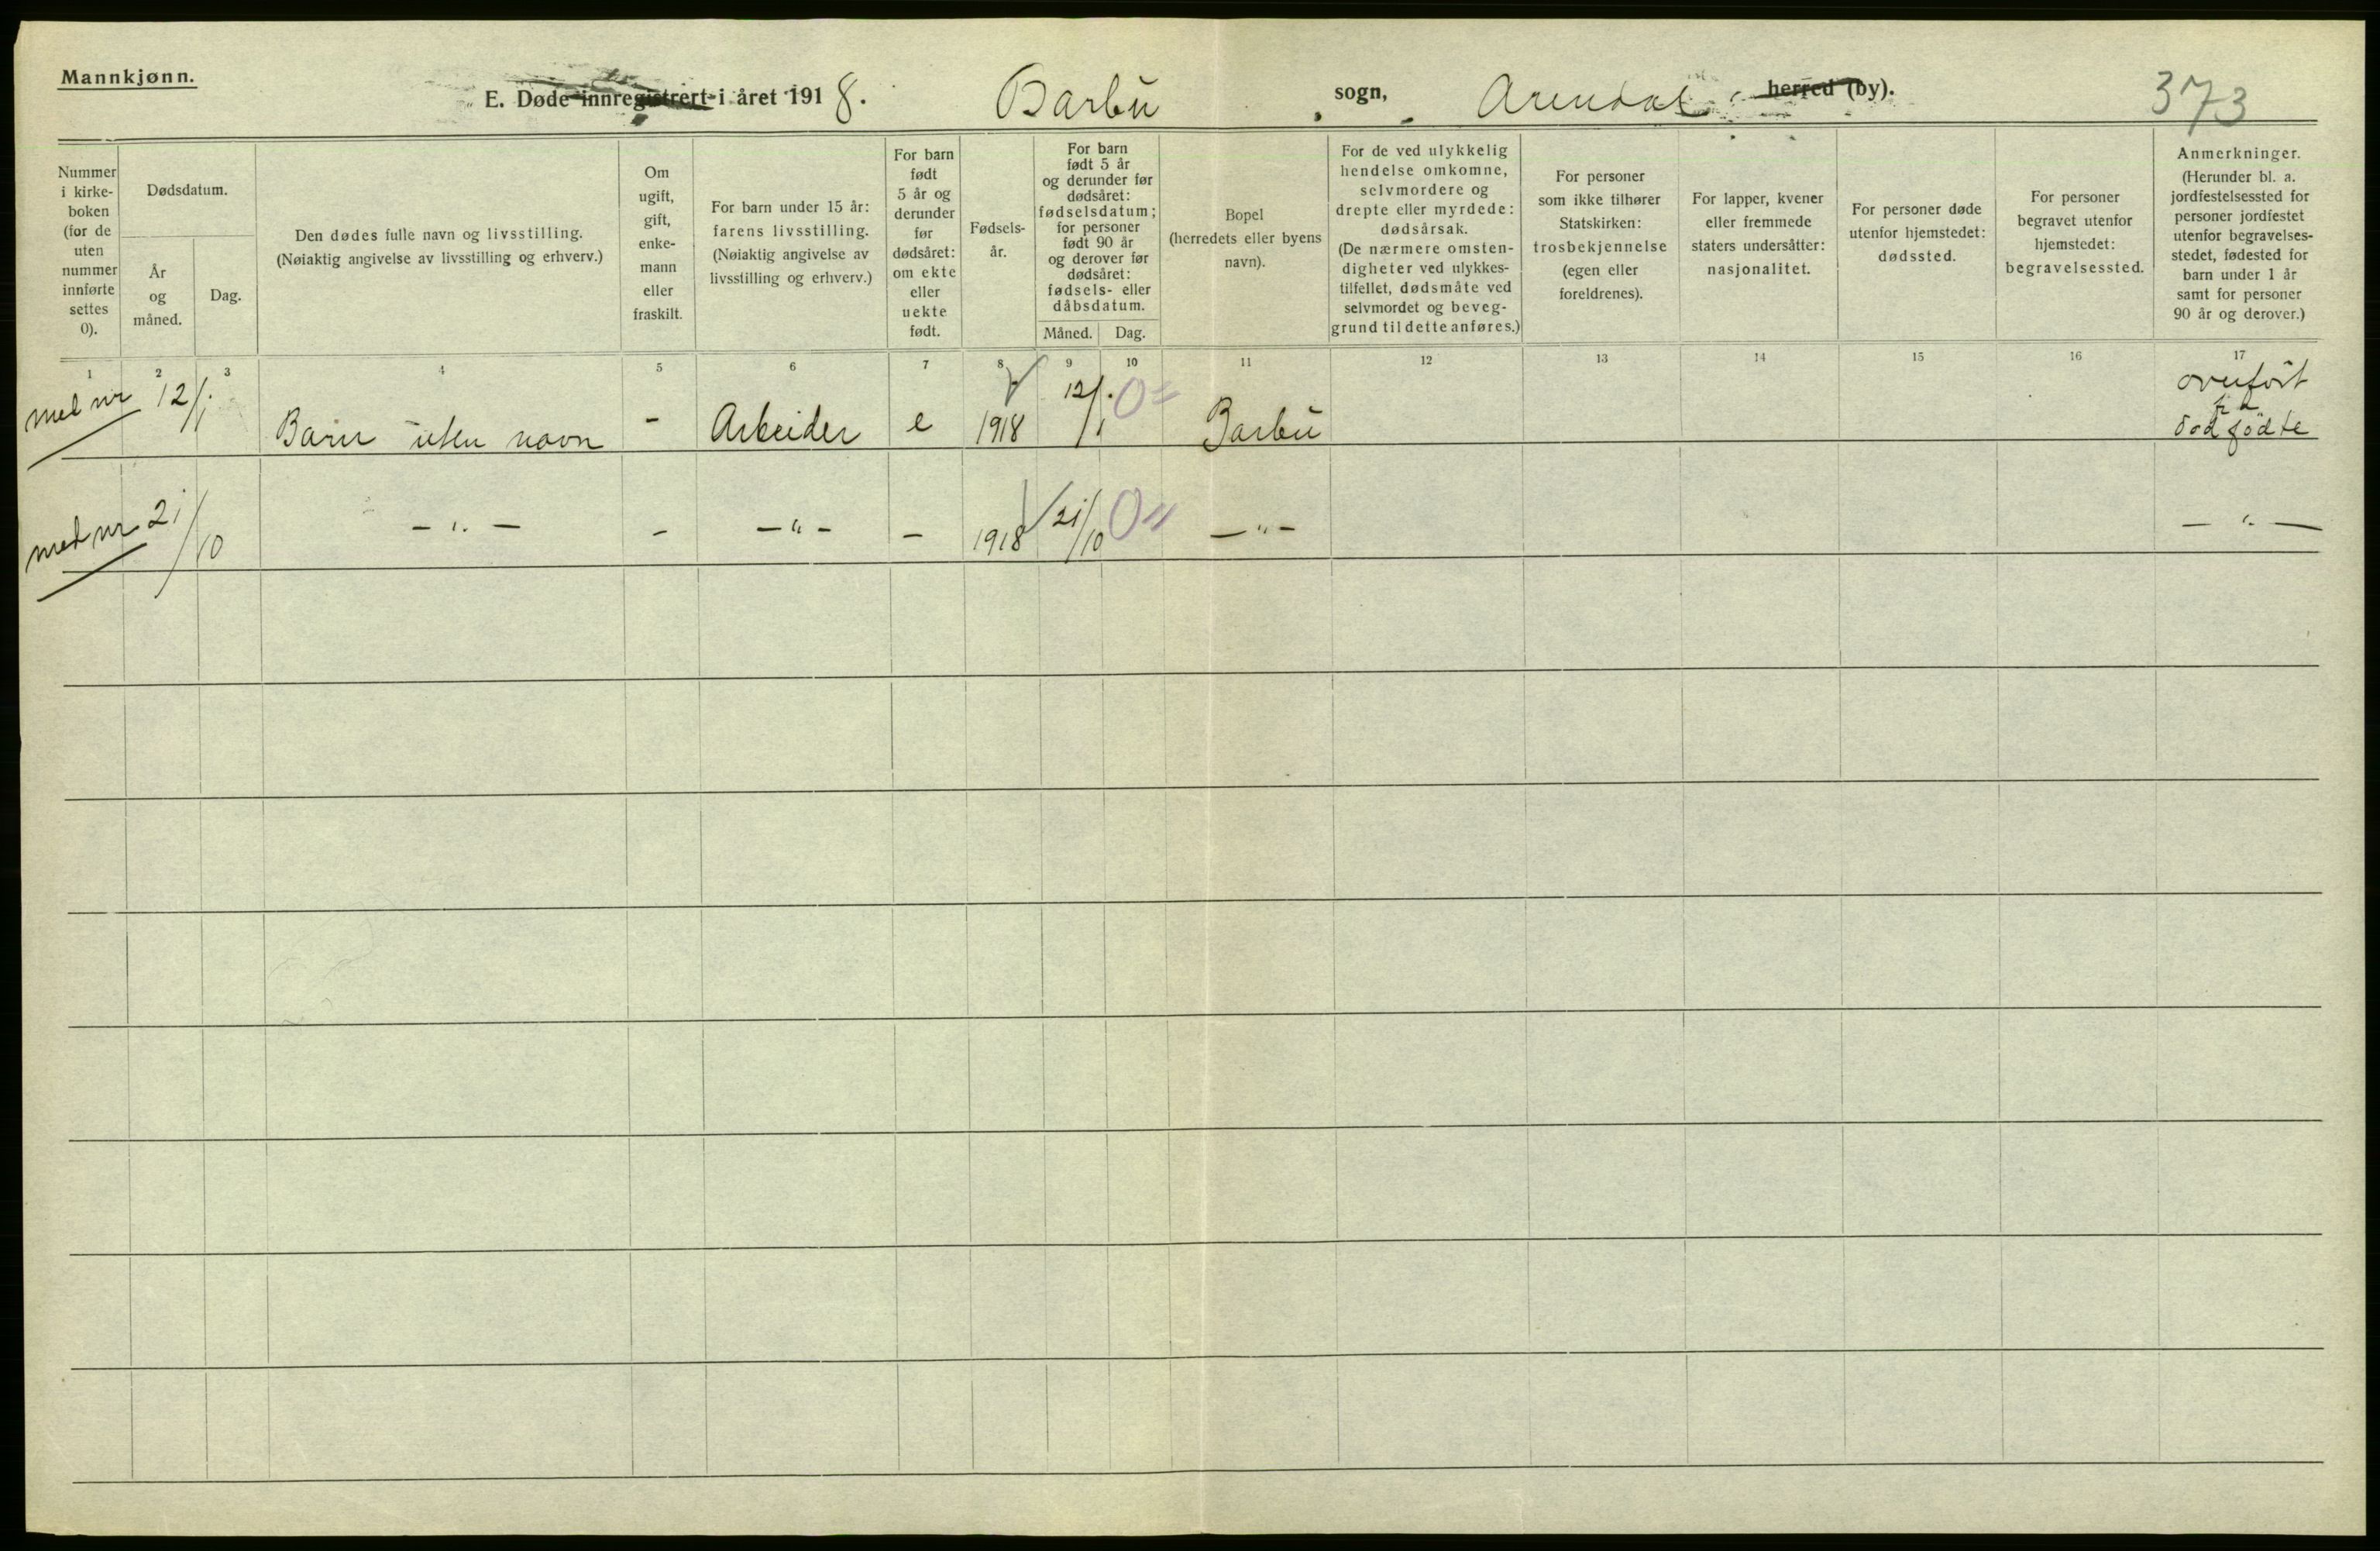 Mannkjønn.
E. Døde innregistrert i året 1918. Barbu sogn, Arendal herred (by). 373
Nummer
i kirke-
boken
(for de
uten
nummer
innførte
settes
0).
Dødsdatum.
År
og
måned.
Dag.
Den dødes fulle navn og livsstilling.
(Nøiaktig angivelse av livsstilling og erhverv.)
Om
ugift,
gift,
enke-
mann
eller
fraskilt.
For barn under 15 år:
farens livsstilling.
(Nøiaktig angivelse av
livsstilling og erhverv.)
For barn
født
5 år og
derunder
før
dødsåret:
om ekte
eller
uekte
født.
Fødsels-
år.
For barn
født 5 år
og derunder før
dødsåret:
fødselsdatum;
for personer
født 90 år
og derover før
dødsåret:
fødsels- eller
dåbsdatum.
Måned. Dag.
Bopel
(herredets eller byens
navn).
For de ved ulykkelig
hendelse omkomne,
selvmordere og
drepte eller myrdede:
dødsårsak.
(De nærmere omsten-
digheter ved ulykkes-
tilfellet, dødsmåte ved
selvmordet og beveg-
grund til dette anføres.)
For personer
som ikke tilhører
Statskirken:
trosbekjennelse
(egen eller
foreldrenes).
For lapper, kvener
eller fremmede
staters undersåtter:
nasjonalitet.
For personer døde
utenfor hjemstedet:
dødssted.
For personer
begravet utenfor
hjemstedet:
begravelsessted.
Anmerkninger.
(Herunder bl. a.
jordfestelsessted for
personer jordfestet
utenfor begravelses-
stedet, fødested for
barn under 1 år
samt for personer
90 år og derover.)
1 2 3 4 5 6 7 8 9 10 11 12 13 14 15 16 17
12/1. Barn uten navn - Arbeider e 1918 12/1. 0 Barbu overført
fra
dødfødte
21/10 - " - - - " - - 1918 21/10 0 - " - - " -